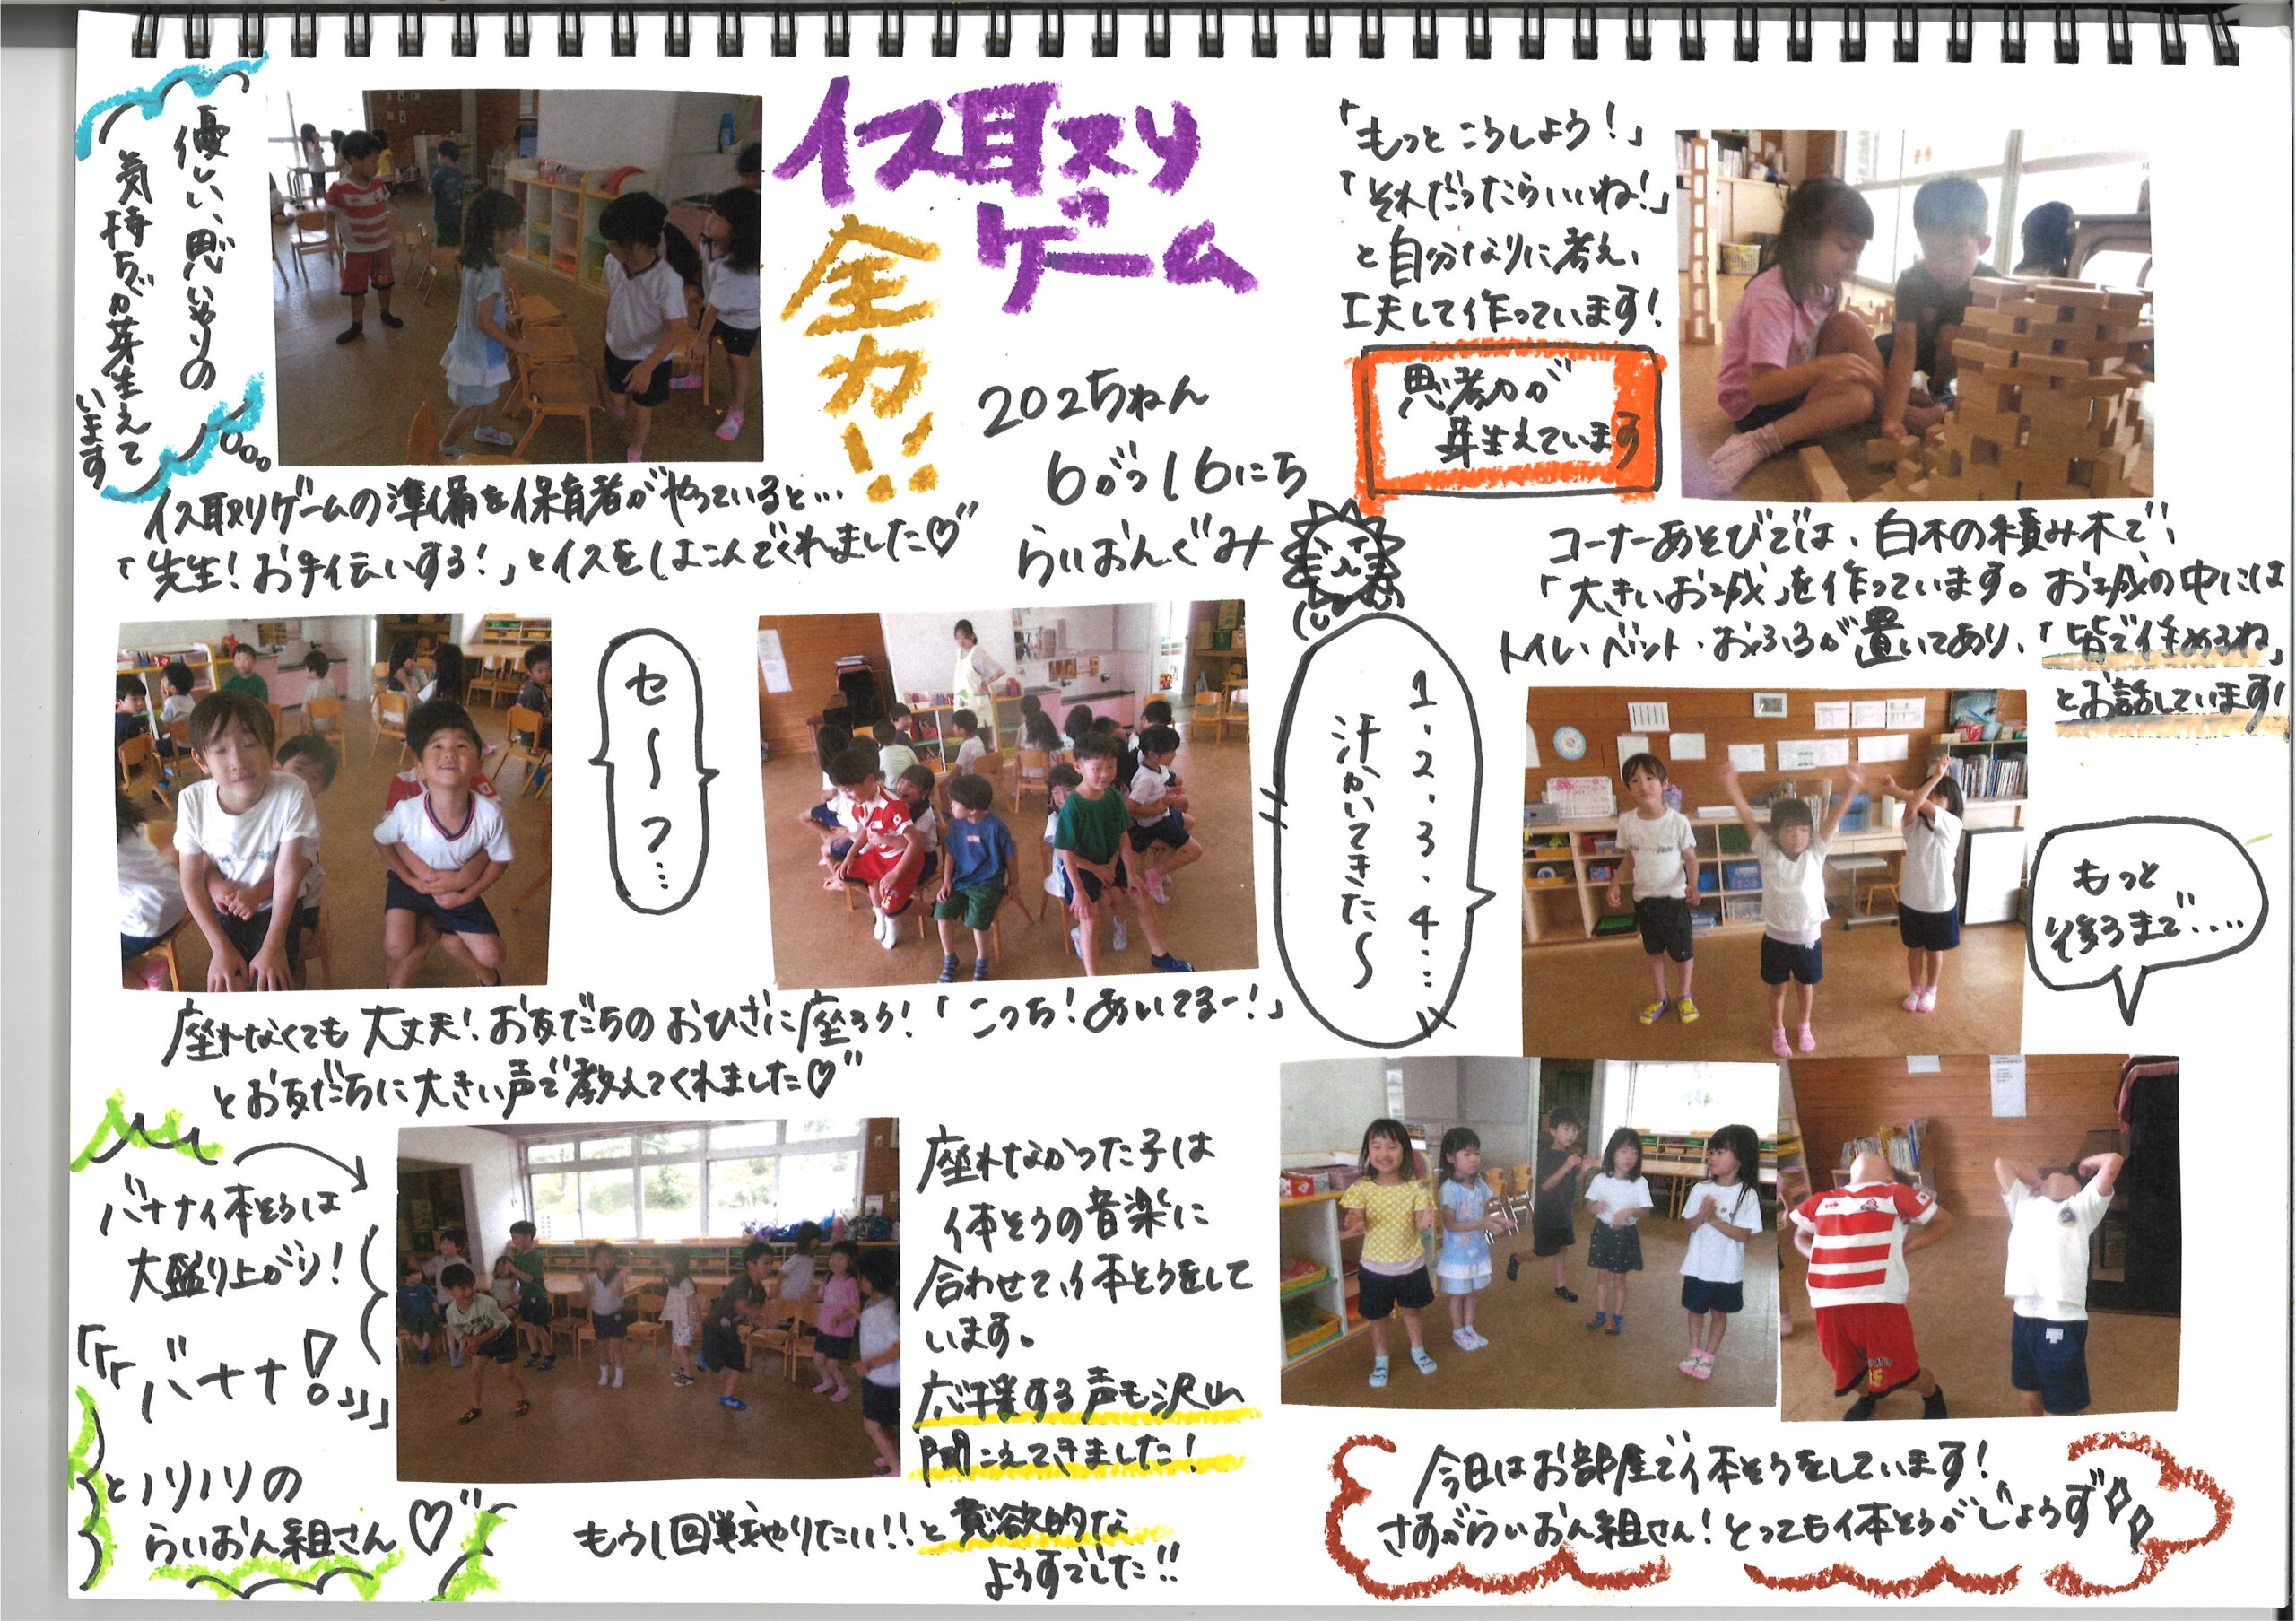 イス取り
ゲーム
全力!!
2025ねん
6がつ16にち
らいおんぐみ
優しい、思いやりの
気持ちが芽生えて
います
イス取りゲームの準備を保育者がやっていると…
「先生!お手伝いする!」とイスをはこんでくれました♡
セ〜フ…
座れなくても大丈夫!お友だちのおひざに座ろう!「こっち!あいてるー!」
とお友だちに大きい声で教えてくれました♡
バナナ体そうは
大盛り上がり!
「「「バナナ!」」」
とノリノリの
らいおん組さん♡
座れなかった子は
体そうの音楽に
合わせて、体そうをして
います。
応援する声も沢山
聞こえてきました!
もう1回戦やりたい!!と意欲的な
ようすでした!!
「もっとこうしよう!」
「それだったらいいね!」
と自分なりに考え、
工夫して作っています!
思考力が
芽生えています
コーナーあそびでは、白木の積み木で、
「大きいお城」を作っています。お城の中には
トイレ・ベット・おふろが置いてあり、「皆で住めるね」
とお話しています!
1.2.3.4……
汗かいてきた〜
もっと
後ろまで……
今日はお部屋で体そうをしています!
さすがらいおん組さん!とっても体そうがじょうず